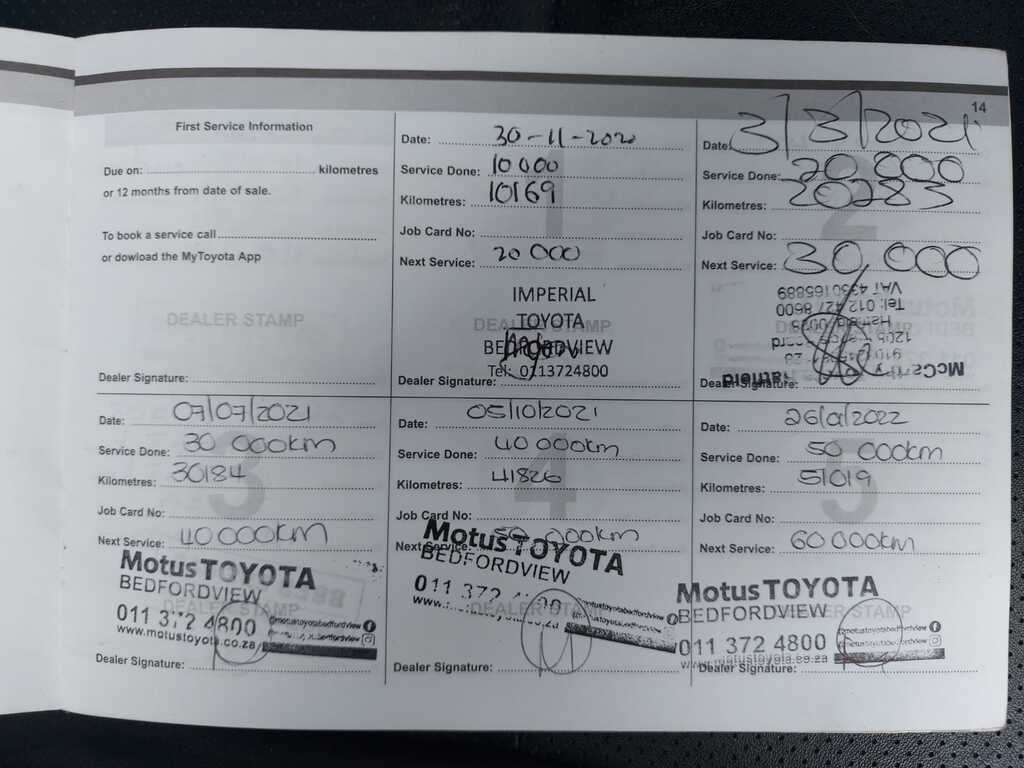 14
First Service Information
Due on: kilometres
or 12 months from date of sale.
To book a service call
or dowload the MyToyota App
DEALER STAMP
Dealer Signature:
1
Date: 30-11-2020
Service Done: 10 000
Kilometres: 10169
Job Card No:
Next Service: 20 000
DEALER STAMP
IMPERIAL
TOYOTA
BEDFORDVIEW
Tel: 0113724800
Dealer Signature:
2
Date: 3/3/2021
Service Done: 20 000
Kilometres: 20283
Job Card No:
Next Service: 30,000
VAT 4350165889
Tel: 012 427 8600
Hatfield
Dealer Signature:
3
Date: 07/07/2021
Service Done: 30 000km
Kilometres: 30184
Job Card No:
Next Service: 40 000km
Motus TOYOTA
BEDFORDVIEW
DEALER STAMP
011 372 4800
@motustoyotabedfordview
www.motustoyota.co.za
Dealer Signature:
4
Date: 05/10/2021
Service Done: 40 000km
Kilometres: 41826
Job Card No:
Next Service: 50 000km
Motus TOYOTA
BEDFORDVIEW
DEALER STAMP
011 372
@motustoyotabedfordview
www.
Dealer Signature:
5
Date: 26/01/2022
Service Done: 50 000km
Kilometres: 51019
Job Card No:
Next Service: 60 000km
Motus TOYOTA
BEDFORDVIEW
DEALER STAMP
011 372 4800
@motustoyotabedfordview
www.motustoyota.co.za
Dealer Signature: